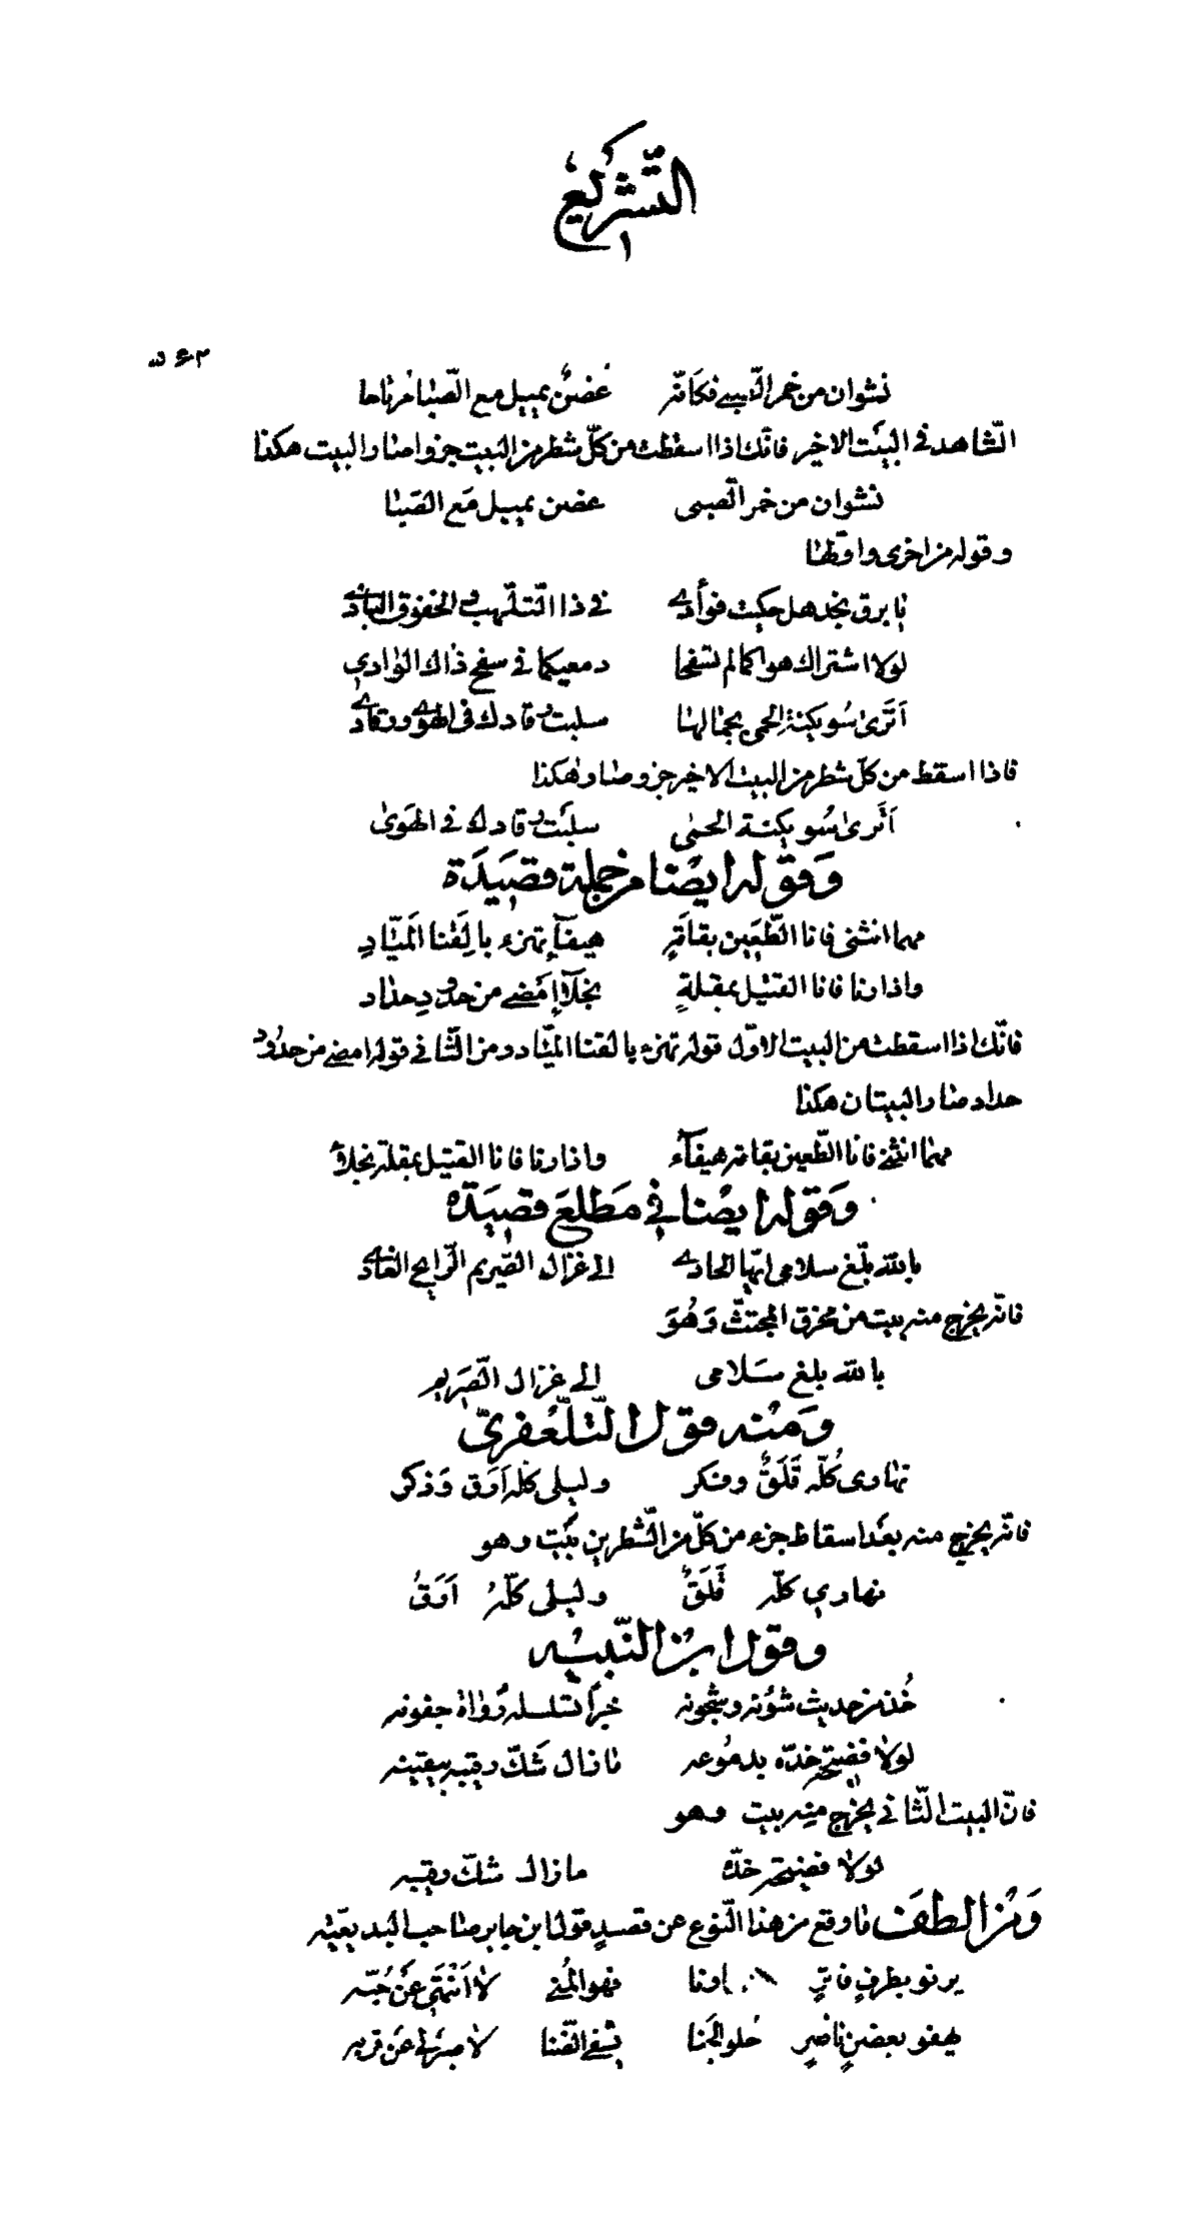 التشريع
نشوان من خمر الصبى فكأنه غصن يميل مع الصبا مرتاحا
الشاهد في البيت الاخير فانك اذا اسقطت من كل شطر من البيت جزوا صار البيت هكذا
نشوان من خمر الصبى غصن يميل مع الصبا
وقوله من اخرى واولها
يا برق نجد هل حكيت فوأدي في ذا التلهب والخفوق البادي
لولا اشتراك هواكما لم تسفحا دمعيكما في سفح ذاك الوادي
اترى سويكنة الحمى بجمالها سلبت رقادك في الهوى ورقادي
فاذا اسقط من كل شطر من البيت الاخير جزو صار هكذا
اترى سويكنة الحمى سلبت رقادك في الهوى
وقوله ايضا من جملة قصيدة
مهما انثنى فانا الطعين بقامة هيفآء تهزء بالقنا الميّاد
واذا رنا فانا القتيل بمقلة نجلآء امضى من حدود حداد
فانك اذا اسقطت من البيت الاول قوله تهزء بالقنا الميّاد ومن الثاني قوله امضى من حدود
حداد صار البيتان هكذا
مهما انثنى فانا الطعين بقامة هيفآء واذا رنا فانا القتيل بمقلة نجلاء
وقوله ايضا في مطلع قصيدة
بالله بلّغ سلامى ايها الحادي الى غزال الصريم الرايح الغادي
فانه يخرج منه بيت من مخزق المجتث وهو
بالله بلغ سلامى الى غزال الصريم
ومنه قول التلعفري
نهارى كله قلق وفكر وليلى كله ارق وذكر
فانه يخرج منه بعد اسقاط جزء من كل من الشطرين بيت وهو
نهاري كله قلق وليلى كله ارق
وقول ابن النبيه
خذ من حديث شؤنه وشجونه خبرا تسلسله رواة جفونه
لولا فضيحة خده بدموعه ما زال شك رقيبه بيقينه
فان البيت الثاني يخرج منه بيت وهو
لولا فضيحة خده ما زال شك رقيبه
ومن الطف ما وقع من هذا النوع عن قصد قول ابن جابر صاحب البديعية
يرنو بطرف فاتر رنا فهو المنى لا انتهى عن حبه
يهفو بغصن ناضر حلو الجنا يشفي الضنا لا صبر لي عن قربه